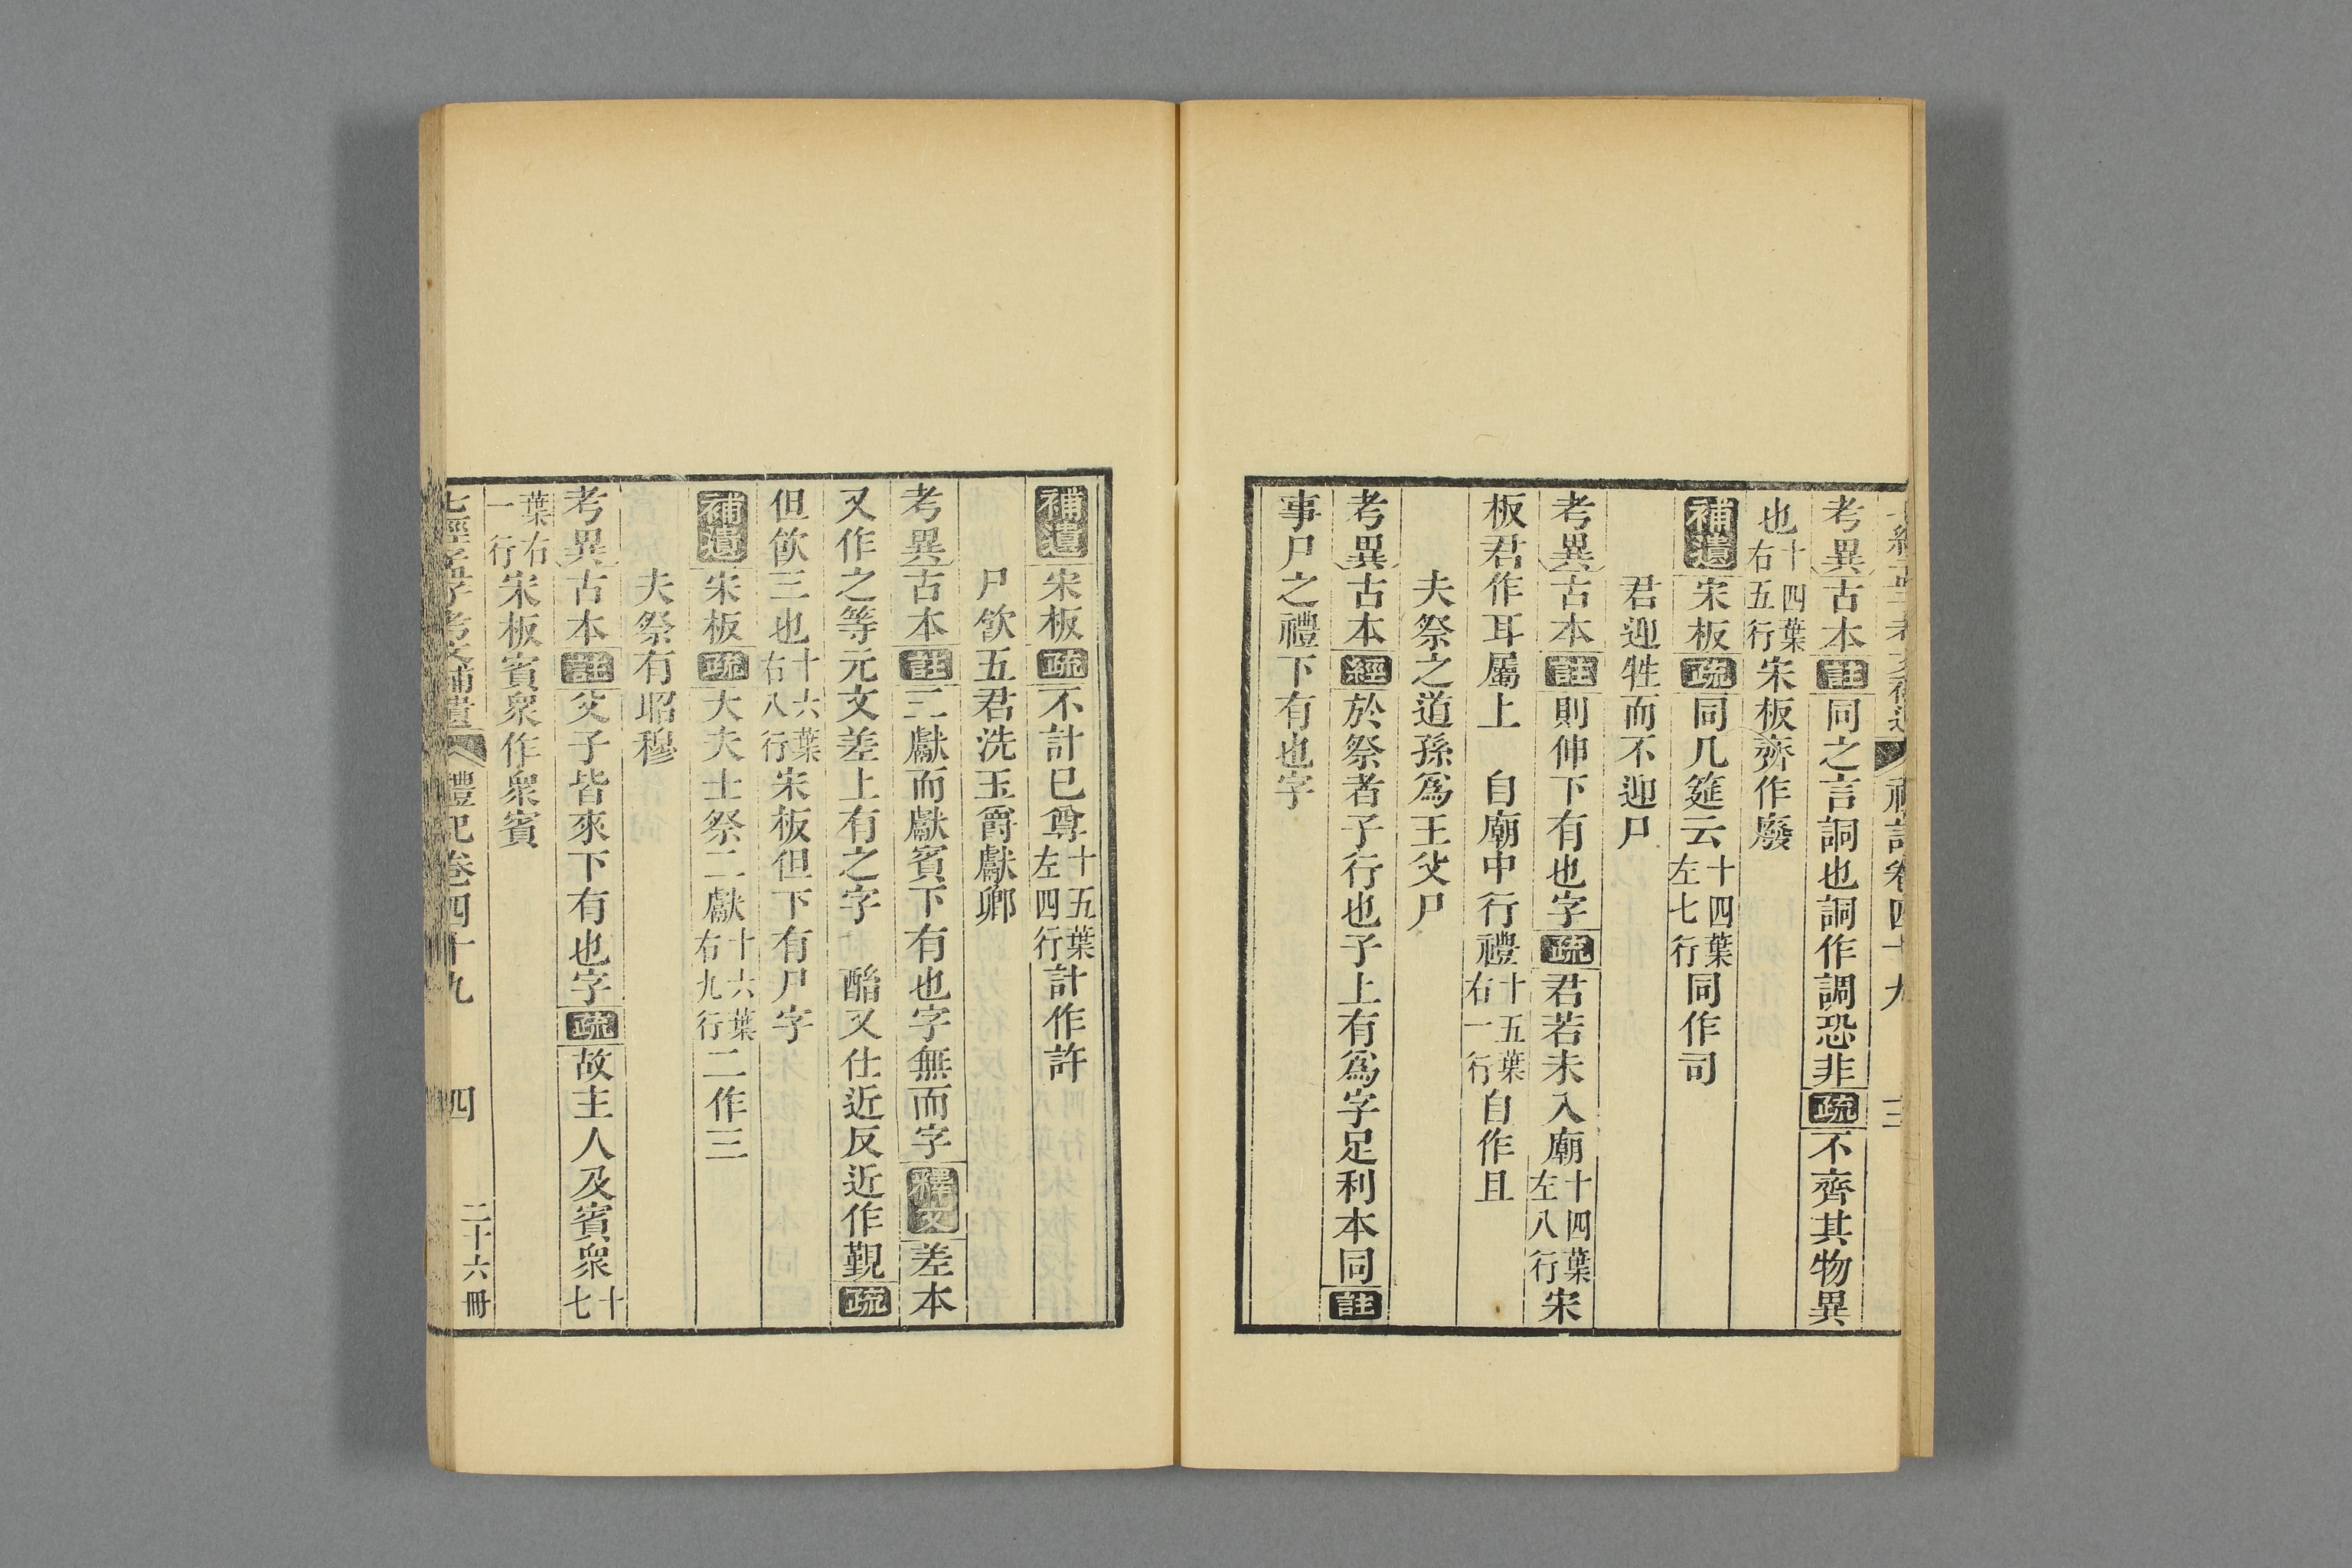 考異古本註同之言詷也詷作調恐非疏不齊其物異
也十四葉右五行宋板齊作廢
補遺宋板疏同几筵云十四葉左七行同作司
君迎牲而不迎尸
考異古本註則伸下有也字疏君若未入廟十四葉左八行宋
板君作耳屬上 自廟中行禮十五葉右一行自作且
夫祭之道孫爲王父尸
考異古本經於祭者子行也子上有爲字足利本同註
事尸之禮下有也字
補遺宋板疏不計已尊十五葉左四行計作許
尸飲五君洗玉爵獻卿
考異古本註三獻而獻賓下有也字無而字釋文差本
又作之等元文差上有之字 酳又仕近反近作覲疏
但飲三也十六葉右八行宋板但下有尸字
補遺宋板疏大夫士祭二獻十六葉右九行二作三
夫祭有昭穆
考異古本註父子皆來下有也字疏故主人及賓衆十七
葉右一行宋板賓衆作衆賓
七經孟子考文補遺 禮記卷四十九 四 二十六冊